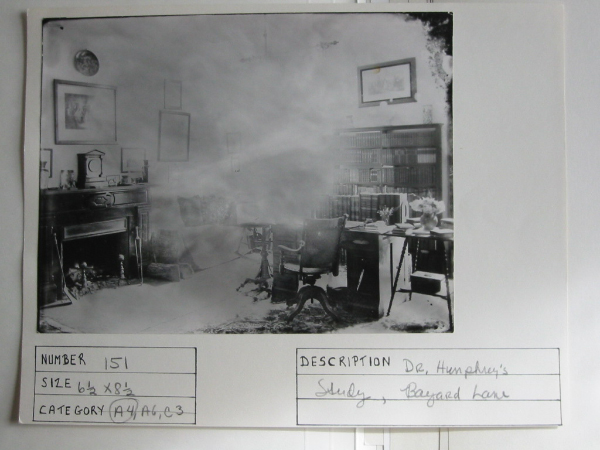 NUMBER 151
SIZE 6½ x 8½
CATEGORY A4, A6, C3
DESCRIPTION Dr. Humphrey's
Study, Bayard Lane